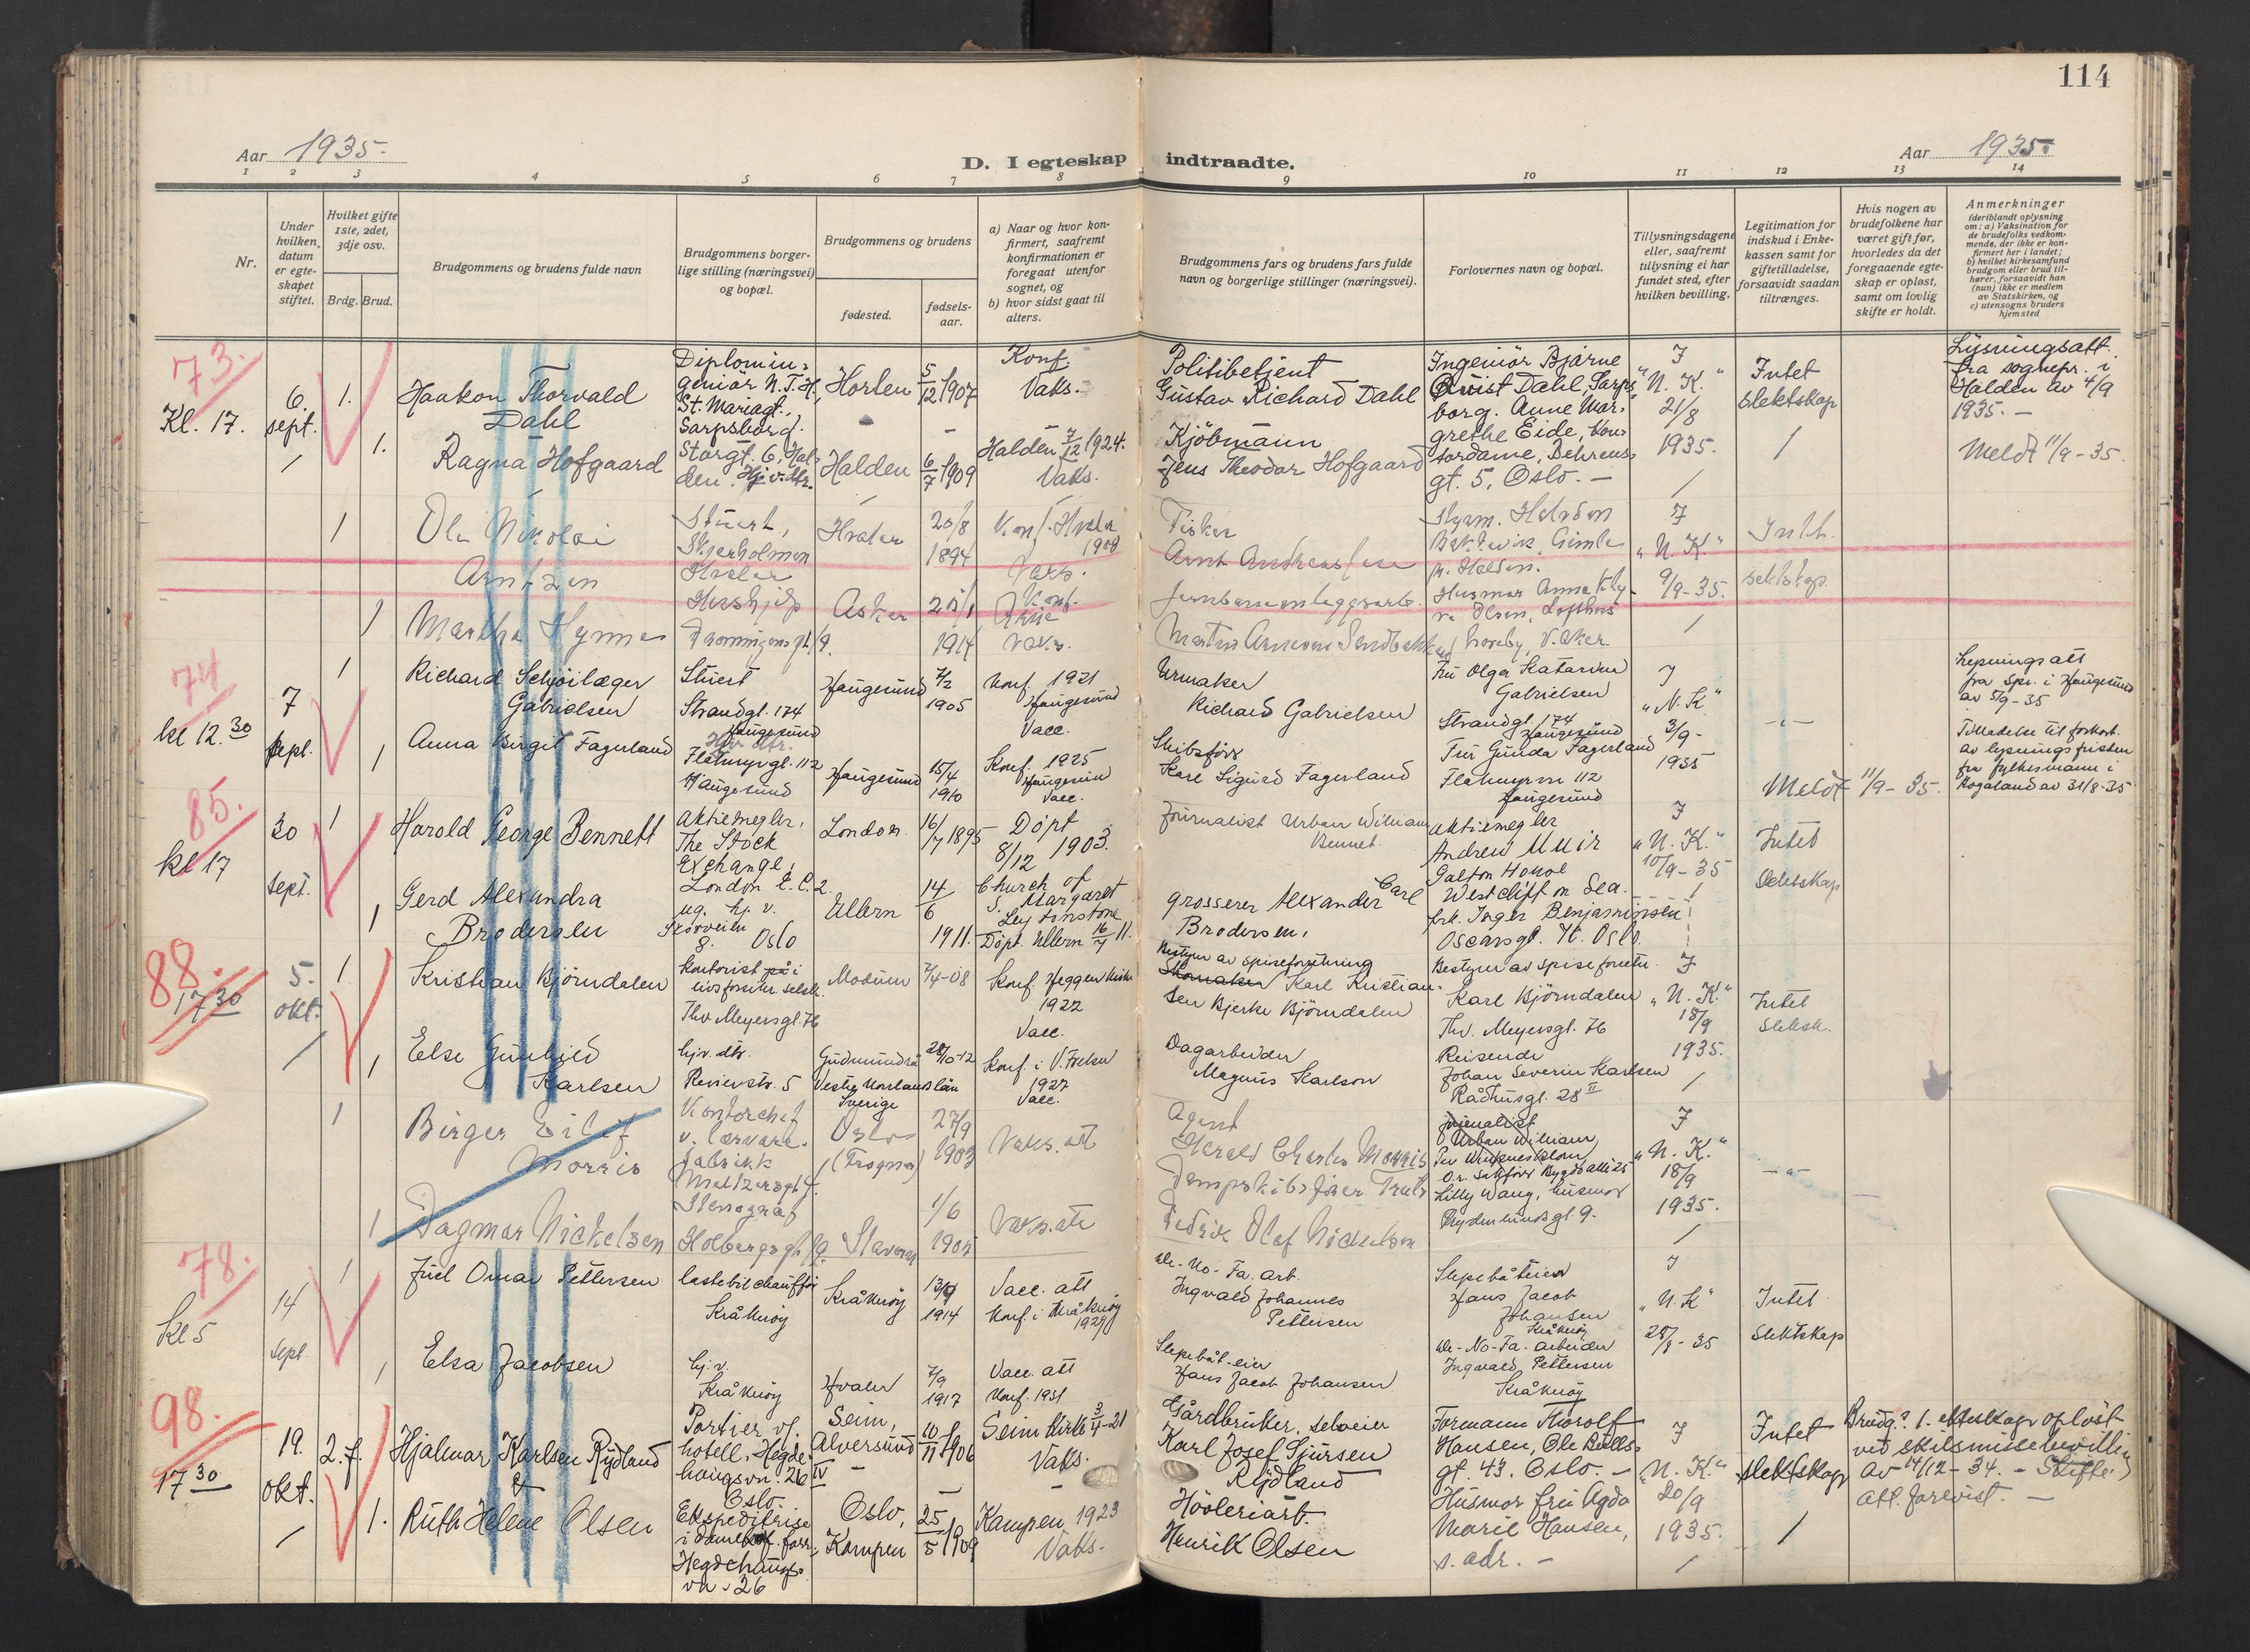 114
Aar 1935.
D. I egteskap indtraadte.
Aar 1935.
1 2 3 4 5 6 7 8 9 10 11 12 13 14
Nr.
Under hvilken datum er egteskapet stiftet.
Hvilket gifte 1ste, 2det, 3dje osv.
Brdg. Brud.
Brudgommens og brudens fulde navn
Brudgommens borger-
lige stilling (næringsvei)
og bopæl.
Brudgommens og brudens
fødested.
fødsels-
aar.
a) Naar og hvor kon-
firmert, saafremt
konfirmationen er
foregaat utenfor
sognet, og
b) hvor sidst gaat til
alters.
Brudgommens fars og brudens fars fulde
navn og borgerlige stillinger (næringsvei).
Forlovernes navn og bopæl.
Tillysningsdagene
eller, saafremt
tillysning ei har
fundet sted, efter
hvilken bevilling.
Legitimation for
indskud i Enke-
kassen samt for
giftetilladelse,
forsaavidt saadan
tiltrænges.
Hvis nogen av
brudefolkene har
været gift før,
hvorledes da det
foregaaende egte-
skap er opløst,
samt om lovlig
skifte er holdt.
Anmerkninger
(deriblandt oplysning
om: a) Vaksination for
de brudefolks vedkom-
mende, der ikke er kon-
firmert her i landet;
b) hvilket kirkesamfund
brudgom eller brud til-
hører, forsaavidt han
(hun) ikke er medlem
av Statskirken, og
c) utensogns bruders
hjemsted
73.
Kl. 17.
6. sept.
1.
Haakon Thorvald
Dahl
Diplomin-
geniör N.T.H.,
St. Mariagt.,
Sarpsborg.
Horten 5/12 1907
Konf.
Vaks.
Politibetjent
Gustav Richard Dahl
Ingeniör Bjarne
Qvist Dahl, Sarps-
borg. Anne Mar-
grethe Eide, kon-
tordame, Behrens-
gt. 5, Oslo. —
I
"N. K."
21/8
1935.
Intet
slektskap
Lysningsatt.
fra sognepr. i
Halden av 4/9
1935. —
1.
Ragna Hofgaard
Storgt. 6, Hal-
den. Hj.v. dtr.
Halden 6/7 1909
Halden 7/12 1924.
Vaks.
Kjöbmann
Jens Theodor Hofgaard
Meldt 11/9 - 35.
1
Ole Nikolai
Arntzen
Stuert,
Skjerholmen
Hvaler
Hvaler 20/8 1894
Konf. Hvaler
1908
Vaks.
Fisker
Styrm. Halvdan
I
"N. K."
9/9 - 35.
Intet
slektskap
1
Martha Hynne
Hushjelp
Dronningensgt.
Asker 1914
Konf.
Vaks.
74
kl 12.30
7 sept.
1
Richard Schöilæger
Gabrielsen
Stuert
Strandgt. 174
Haugesund
Haugesund 7/2 1905
Konf. 1921
Haugesund
Vacc.
Urmaker
Richard Gabrielsen
Fru Olga Katarina
Gabrielsen
Strandgt. 174
Haugesund
I
"N. K"
3/9 -
1935
Lysningsatt
fra Spr. i Haugesund
av 5/9 - 35
1
Anna Birgit Fagerland
Hjv dtr.
Flotmyrgt. 112
Haugesund
Haugesund 15/4 1910
Konf. 1925
Haugesund
Vacc.
Skibsförer
Karl Sigurd Fagerland
Fru Gunda Fagerland
Flotmyrgt 112
Haugesund
Tilladelse til forkort.
av lysningsfristen
fra fylkesmann i
Rogaland av 31/8 - 35
Meldt 11/9 - 35.
85.
kl 17
30 sept.
1
Harold George Bennett
Aktiemegler,
The Stock
Exchange,
London E.C.2.
London. 16/7 1895
Döpt
8/12 1903.
Church of
S. Margaret
Leytonstone
Journalist Urban William
Bennet.
Aktiemegler
Andrew Muir
Galton House
Westcliff on Sea.
I
"N. K."
10/9 - 35
Intet
Slektskap
1
Gerd Alexandra
Brodersen
ug. hj. v.
8. Oslo
Ullern 14/6 1911.
Döpt. Ullern 16/7 11.
grosserer Alexander Carl
Brodersen.
frk. Inger Benjaminsen
Oscarsgt. Oslo.
88.
17 30
5. okt.
1.
Kristian Björndalen
Kontorist på i
livsforsikr. selsk.
Thv. Meyersgt. 76
Modum 7/4-08
Konf. Heggen kirke
1922
Vacc.
Bestyrer av spiseforretning
Skomaker Karl Kristian-
sen Bjerke Björndalen
Bestyrer av spiseforretn.
Karl Björndalen
Thv. Meyersgt. 76
I
"N. K."
18/9
1935.
Intet
Slektsk.
1
Else Gunhild
Karlsen
hjv. dtr.
Reviervstr. 5
Gudmundrå
Vester Norrlands län
Sverige
28/10-12
Konf. i V. Frelser
1927
Vacc.
Dagarbeider
Magnus Karlson
Reisende
Johan Severin Karlsen
Rådhusgt. 28 II
1
Birger Eilif
Morris
Kontorchef
v. lærvare-
fabrikk
Meltzersgt 4.
Oslo
(Frogner)
27/9 1903
Vaks. att
Agent
Harald Charles Morris
journalist
Urban William
"N. K."
18/9
1935.
1
Dagmar Nickelsen
Stenograf
Holbergsgt.
Stavern 1/6
Vaks. att
Dampskibsförer
Fredrik Olaf Nickelsen
Lilly Wang, husmor
78.
kl 5
14 sept.
1
Juel Omar Pettersen
lastebilchaufför
Kråkeröy
Kråkeröy 13/9 1914
Vacc. att
Konf. i Kråkeröy
1929
De-No-Fa. arb.
Ingvald Johannes
Pettersen
Slepebåteier
Hans Jacob
Johansen
Kråkeröy
I
"N. K"
28/8 - 35
Intet
Slektskap
1
Elsa Jacobsen
hj. v.
Kråkeröy
Hvaler 7/9 1917
Vacc. att
Konf. 1931
Slepebåt-eier
Hans Jacob Johansen
De-No-Fa. arbeider
Ingvald Pettersen
Kråkeröy
98.
17 30
19. okt.
2. f.
Hjalmar Karlsen Rydland
&
Portier v/
hotell. Hegde-
haugsvn. 26 IV
Oslo.
Seim,
Alversund 10/11 1906
Seim kirke 3/4-21
Vaks.
Gårdbruker, selveier
Karl Josef Sjursen
Rydland
Formann Thorolf
Hansen, Ole Bulls-
gt. 43. Oslo. —
I
"N. K."
20/9
1935.
Intet
slektskap
Brudg.s 1. ekteskap oplöst
ved skilsmissebevilling
av 14/12 - 34. - Skifte-
att. forevist. —
1.
Ruth Helene Olsen
Ekspeditrise
Hegdehaugs-
vn. 26
Oslo,
Kampen 25/5 1909
Kampen 1923
Vaks.
Hövleriarb.
Henrik Olsen
Husmor fru Agda
Marie Hansen,
s. adr. —